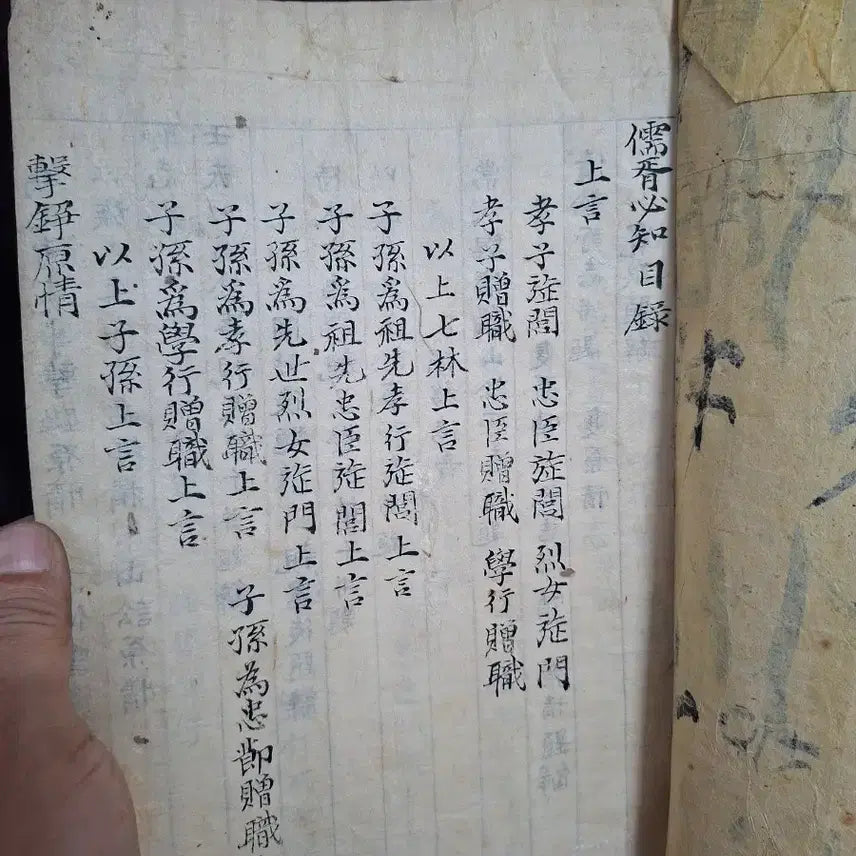 儒胥必知目錄
上言
孝子旌閭 忠臣旌閭 烈女旌門
孝子贈職 忠臣贈職 學行贈職
以上七林上言
子孫爲祖先孝行旌閭上言
子孫爲祖先忠臣旌閭上言
子孫爲先世烈女旌門上言
子孫爲孝行贈職上言 子孫爲忠節贈職
子孫爲學行贈職上言
以上子孫上言
擊錚原情